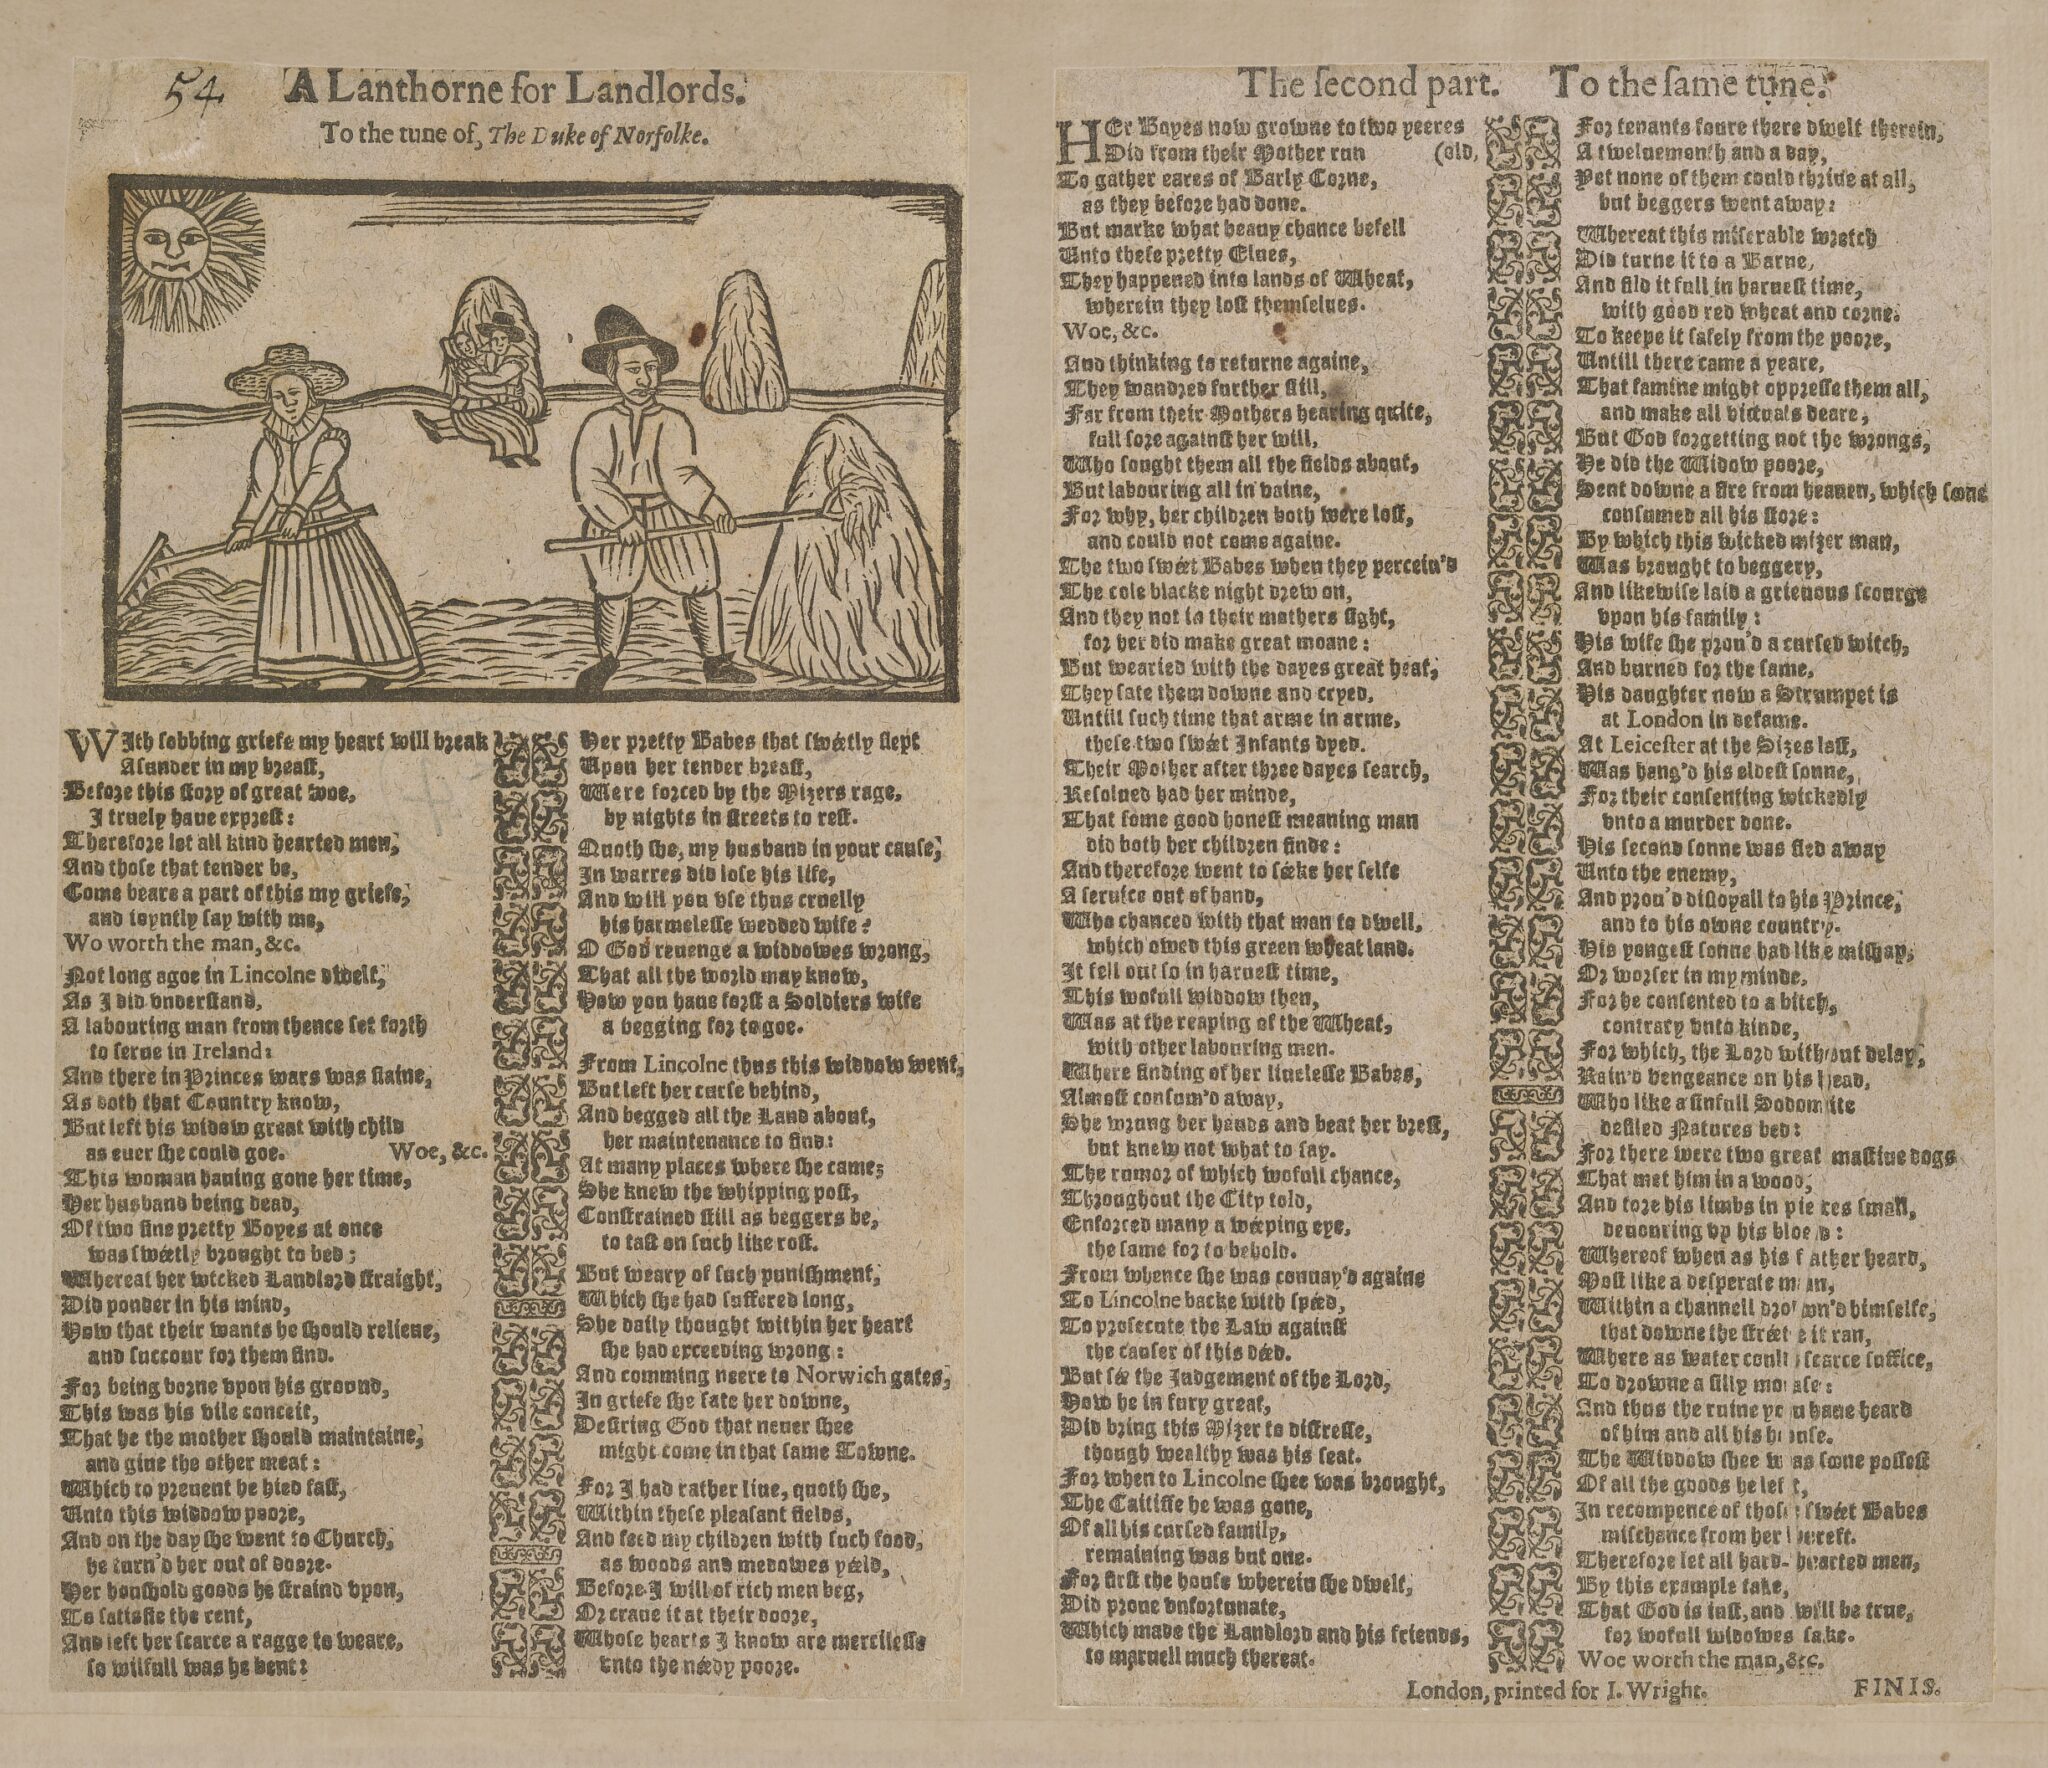 54
A Lanthorne for Landlords.
To the tune of, The Duke of Norfolke.
WIth sobbing griefe my heart will break
Asunder in my breast,
Before this story of great woe,
I truely haue exprest:
Therefore let all kind hearted men,
And those that tender be,
Come beare a part of this my griefe,
and ioyntly say with me,
Wo worth the man, &c.
Not long agoe in Lincolne dwelt,
As I did vnderstand,
A labouring man from thence set forth
to serue in Ireland:
And there in Princes wars was slaine,
As doth that Country know,
But left his widow great with child
as euer she could goe. Woe, &c.
This woman hauing gone her time,
Her husband being dead,
Of two fine pretty Boyes at once
was swéetly brought to bed;
Whereat her wicked Landlord straight,
Did ponder in his mind,
How that their wants he should relieue,
and succour for them find.
For being borne vpon his ground,
This was his vile conceit,
That he the mother should maintaine,
and giue the other meat:
Which to preuent he hied fast,
Unto this widdow poore,
And on the day she went to Church,
he turn'd her out of doore.
Her houshold goods he straind vpon,
To satisfie the rent,
And left her scarce a ragge to weare,
so wilfull was he bent:
Her pretty Babes that swéetly slept
Upon her tender breast,
Were forced by the Mizers rage,
by nights in streets to rest.
Quoth she, my husband in your cause,
In warres did lose his life,
And will you vse thus cruelly
his harmelesse wedded wife?
O God reuenge a widdowes wrong,
That all the world may know,
How you haue forst a Soldiers wife
a begging for to goe.
From Lincolne thus this widdow went,
But left her curse behind,
And begged all the Land about,
her maintenance to find:
At many places where she came,
She knew the whipping post,
Constrained still as beggers be,
to tast on such like rost.
But weary of such punishment,
Which she had suffered long,
She daily thought within her heart
she had exceeding wrong:
And comming neere to Norwich gates,
In griefe she sate her downe,
Desiring God that neuer shee
might come in that same Towne.
For I had rather liue, quoth she,
Within these pleasant fields,
And feed my children with such food,
as woods and medowes yéeld,
Before I will of rich men beg,
Or craue it at their doore,
Whose hearts I know are mercilesse
vnto the néedy poore.
The second part. To the same tune.
HEr Boyes now growne to two yeeres
Did from their Mother run (old,
To gather eares of Barly Corne,
as they before had done.
But marke what heauy chance befell
Unto these pretty Elues,
They happened into lands of Wheat,
wherein they lost themselues.
Woe, &c.
And thinking to returne againe,
They wandred further still,
Far from their Mothers hearing quite,
full sore against her will,
Who sought them all the fields about,
But labouring all in vaine,
For why, her children both were lost,
and could not come againe.
The two swéet Babes when they perceiu'd
The cole blacke night drew on,
And they not in their mothers sight,
for her did make great moane:
But wearied with the dayes great heat,
They sate them downe and cryed,
Untill such time that arme in arme,
these two swéet Infants dyed.
Their Mother after three dayes search,
Resolued had her minde,
That some good honest meaning man
did both her children finde:
And therefore went to séeke her selfe
A seruice out of hand,
Who chanced with that man to dwell,
which owed this green wheat land.
It fell out so in haruest time,
This wofull widdow then,
Was at the reaping of the Wheat,
with other labouring men.
Where finding of her liuelesse Babes,
Almost consum'd away,
She wrung her hands and beat her brest,
but knew not what to say.
The rumor of which wofull chance,
Throughout the City told,
Enforced many a wéeping eye,
the same for to behold.
From whence she was conuay'd againe
To Lincolne backe with spéed,
To prosecute the Law against
the causer of this déed.
But sée the Iudgement of the Lord,
How he in fury great,
Did bring this Mizer to distresse,
though wealthy was his seat.
For when to Lincolne shee was brought,
The Caitiffe he was gone,
Of all his cursed family,
remaining was but one.
For first the house wherein she dwelt,
Did proue vnfortunate,
Which made the Landlord and his friends,
to maruell much thereat.
For tenants foure there dwelt therein,
A tweluemonth and a day,
Yet none of them could thriue at all,
but beggers went away:
Whereat this miserable wretch
Did turne it to a Barne,
And fild it full in haruest time,
with good red wheat and corne.
To keepe it safely from the poore,
Untill there came a yeare,
That famine might oppresse them all,
and make all victuals deare,
But God forgetting not the wrongs,
He did the Widow poore,
Sent downe a fire from heauen, which soone
consumed all his store:
By which this wicked mizer man,
Was brought to beggery,
And likewise laid a grieuous scourge
vpon his family:
His wife she prou'd a cursed witch,
And burned for the same,
His daughter now a Strumpet is
at London in defame.
At Leicester at the Sizes last,
Was hang'd his eldest sonne,
For their consenting wickedly
vnto a murder done.
His second sonne was fled away
Unto the enemy,
And prou'd disloyall to his Prince,
and to his owne country.
His yongest sonne had like mishap,
Or worser in my minde,
For he consented to a bitch,
contrary vnto kinde,
For which, the Lord without delay,
Rain'd vengeance on his head,
Who like a sinfull Sodomite
defiled Natures bed:
For there were two great mastiue dogs
That met him in a wood,
And tore his limbs in pieces small,
deuouring vp his blood:
Whereof when as his father heard,
Most like a desperate man,
Within a channell drown'd himselfe,
that downe the stréete it ran,
Where as water could scarce suffice,
To drowne a silly mouse:
And thus the ruine you haue heard
of him and all his house.
The Widdow shee was soone possest
Of all the goods he left,
In recompence of those swéet Babes
mischance from her bereft.
Therefore let all hard-hearted men,
By this example take,
That God is iust, and will be true,
for wofull widowes sake.
Woe worth the man, &c.
London, printed for I. Wright. FINIS.